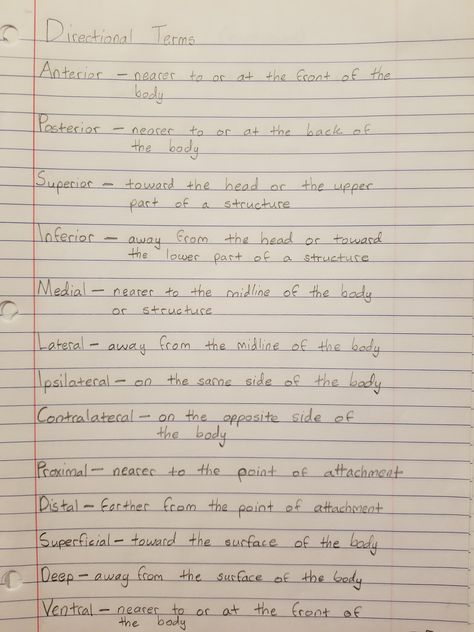 Directional Terms
Anterior – nearer to or at the front of the
body
Posterior – nearer to or at the back of
the body
Superior – toward the head or the upper
part of a structure
Inferior – away from the head or toward
the lower part of a structure
Medial – nearer to the midline of the body
or structure
Lateral – away from the midline of the body
Ipsilateral – on the same side of the body
Contralateral – on the opposite side of
the body
Proximal – nearer to the point of attachment
Distal – farther from the point of attachment
Superficial – toward the surface of the body
Deep – away from the surface of the body
Ventral – nearer to or at the front of
the body